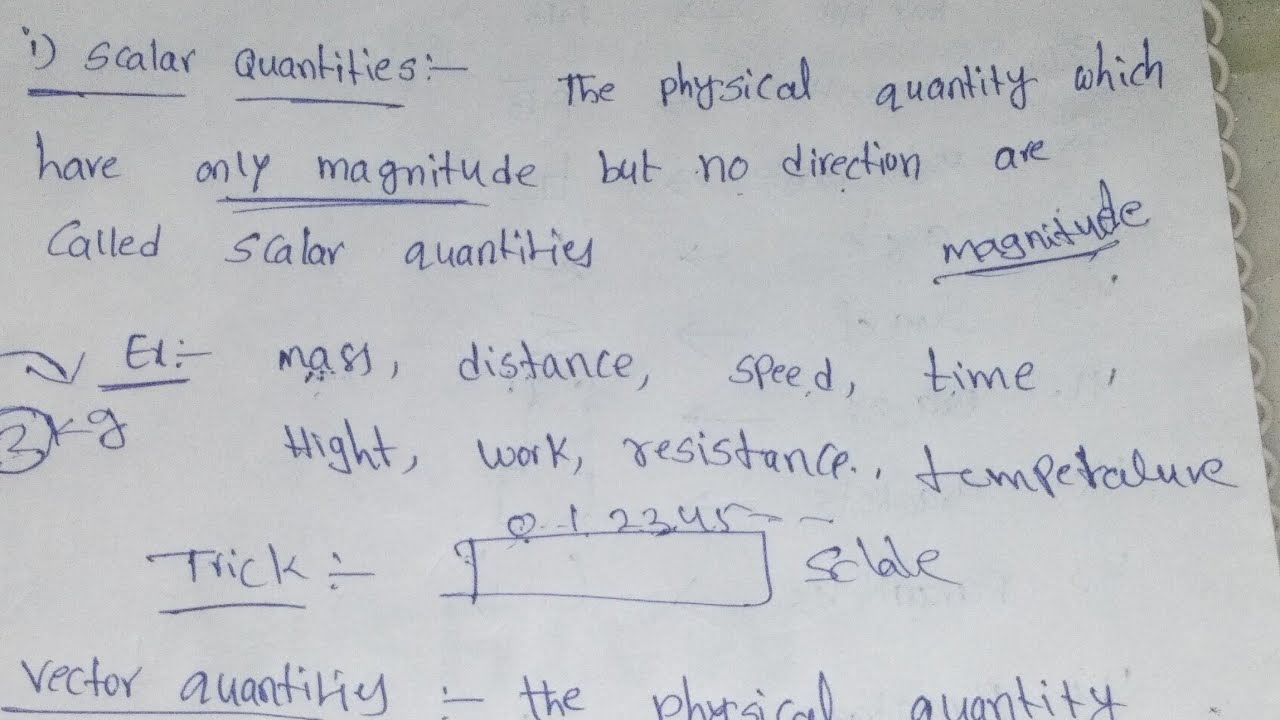 i) Scalar Quantities:- The physical quantity which
have only magnitude but no direction are
Called scalar quantities
magnitude
Ex:- mass, distance, speed, time,
3 kg
Hight, work, resistance, temperature
0 1 2 3 4 5 - -
Trick :-
Vector quantities :- the physical quantity